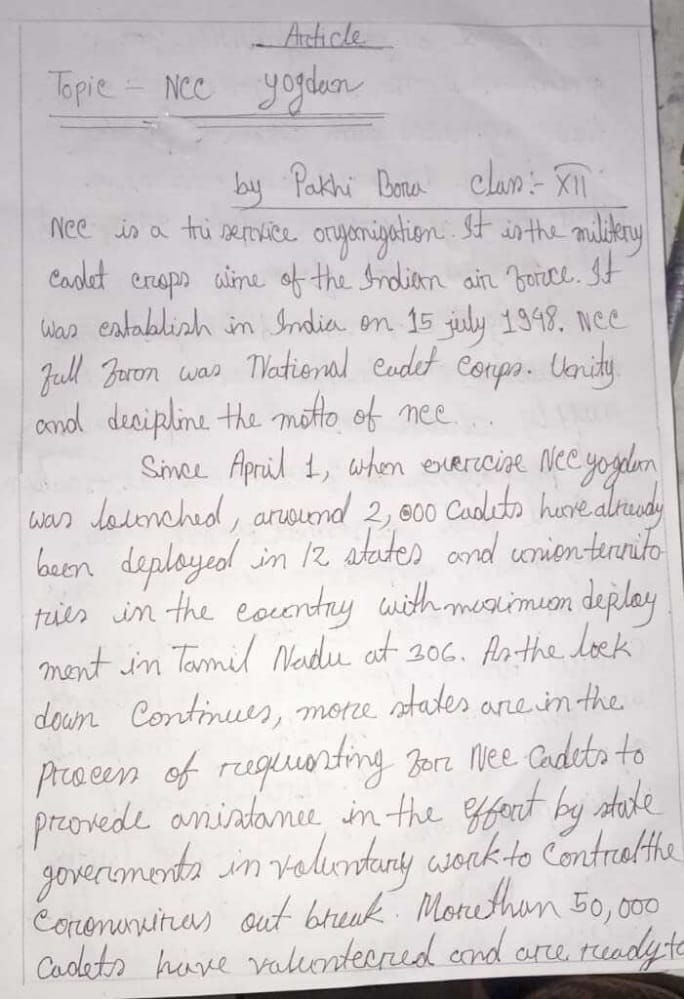 Article
Topic - NCC yogdan
by Pakhi Bora class:- XII
NCC is a tri service organization. It is the militery
cadet crops wine of the Indian air force. It
was establish in India on 15 july 1948. NCC
full foron was National Cadet Corps. Unity
and decipline the motto of ncc...
Since April 1, when exercise NCC yogdan
was launched, around 2,000 Cadets have already
been deployed in 12 states and union territo
ries in the country with maximum deploy
ment in Tamil Nadu at 306. As the lock
down Continues, more states are in the
process of requesting for Ncc Cadets to
provede assistance in the effort by state
governments in voluntary work to Control the
Coronavirus out break. More than 50,000
Cadets have valunteered and are ready to